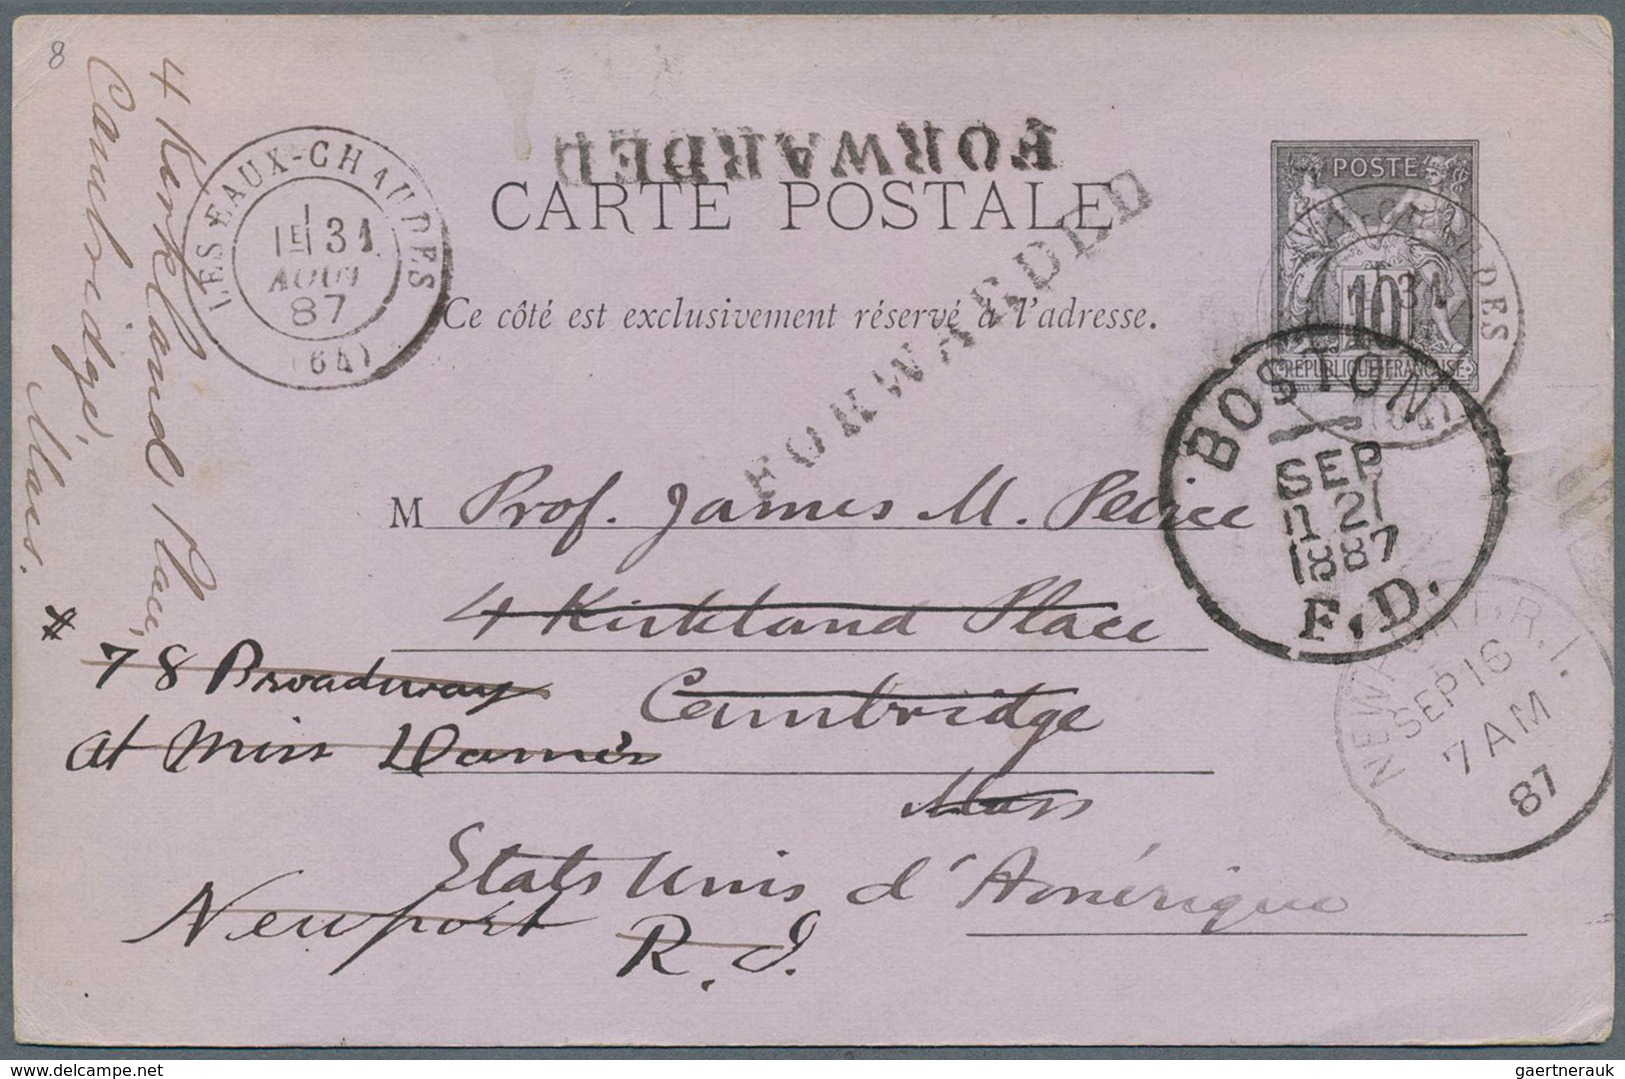 8
4 Kirkland Place,
Cambridge,
Mass.
LES EAUX-CHAUDES
1E 31
AOUT
87
(64)
FORWARDED
CARTE POSTALE
FORWARDED
Ce côté est exclusivement réservé à l'adresse.
POSTE
10
REPUBLIQUE FRANÇAISE
31
DES
BOSTON
SEP
21
1887
F.D.
M Prof. James M. Peirce
4 Kirkland Place
Cambridge
Mass
Etats Unis d'Amérique
78 Broadway
at Miss
Newport
R. I.
NEWPORT, R.I.
SEP 16
7 AM
87
www.delcampe.net
gaertnerauk